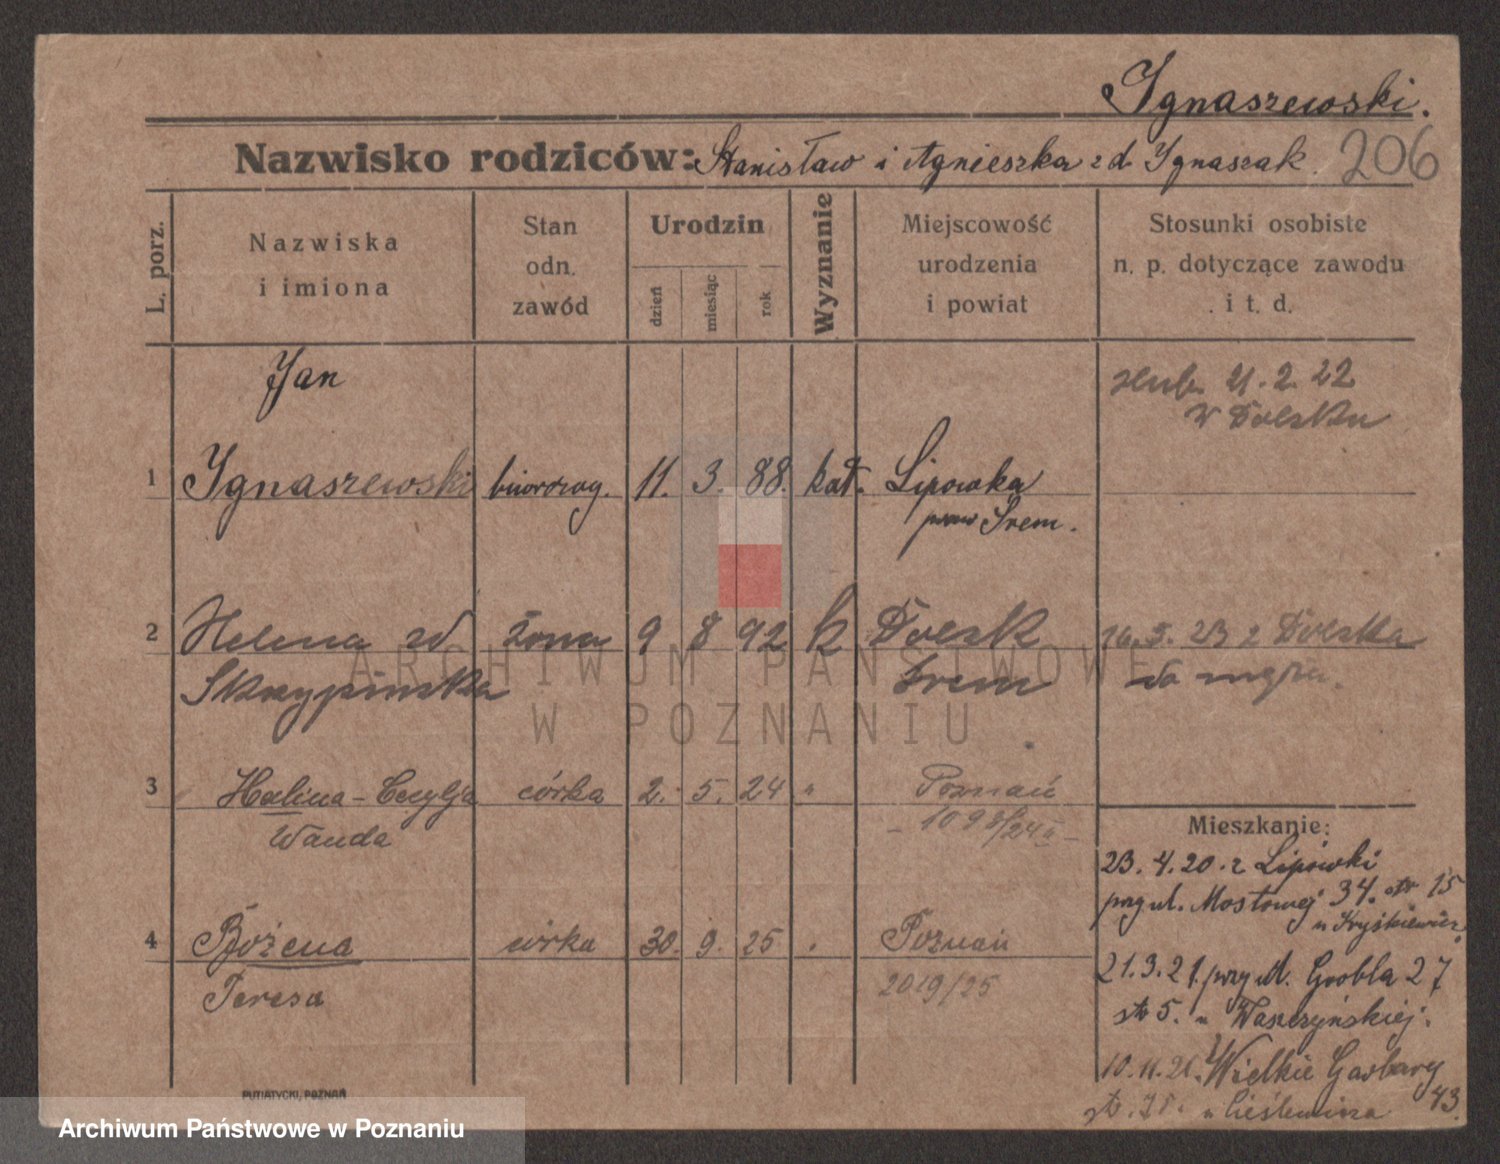 Ignaszewski.
Nazwisko rodziców: Stanisław i Agnieszka z d. Ignaszak.
206
L. porz.
Nazwiska i imiona
Stan odn. zawód
Urodzin
dzień
miesiąc
rok
Wyznanie
Miejscowość urodzenia i powiat
Stosunki osobiste n. p. dotyczące zawodu i t. d.
Jan
ślub 21.2.22
w Dolsku
1 Ignaszewski 11. 3. 88. kat. Lipowka
pow Śrem.
2 Helena zd żona 9 8 92 k Dolsk 16.5.23 z Dolska
Skrzypińska Śrem do męża.
ARCHIWUM PAŃSTWOWE
W POZNANIU
3 Halina-Cecylja córka 2. 5. 24 " Poznań
Wanda - 1098/24 II -
Mieszkanie:
23.4.20. z Lipówki
przy ul. Mostowej 34. str 15
4 Bożena córka 30. 9. 25 " Poznań
Teresa 2019/25
21.3.21. przy ul. Grobla 27
str 5. u Waszczyńskiej.
10.11.21. Wielkie Garbary 43.
PUTIATYCKI, POZNAŃ
Archiwum Państwowe w Poznaniu